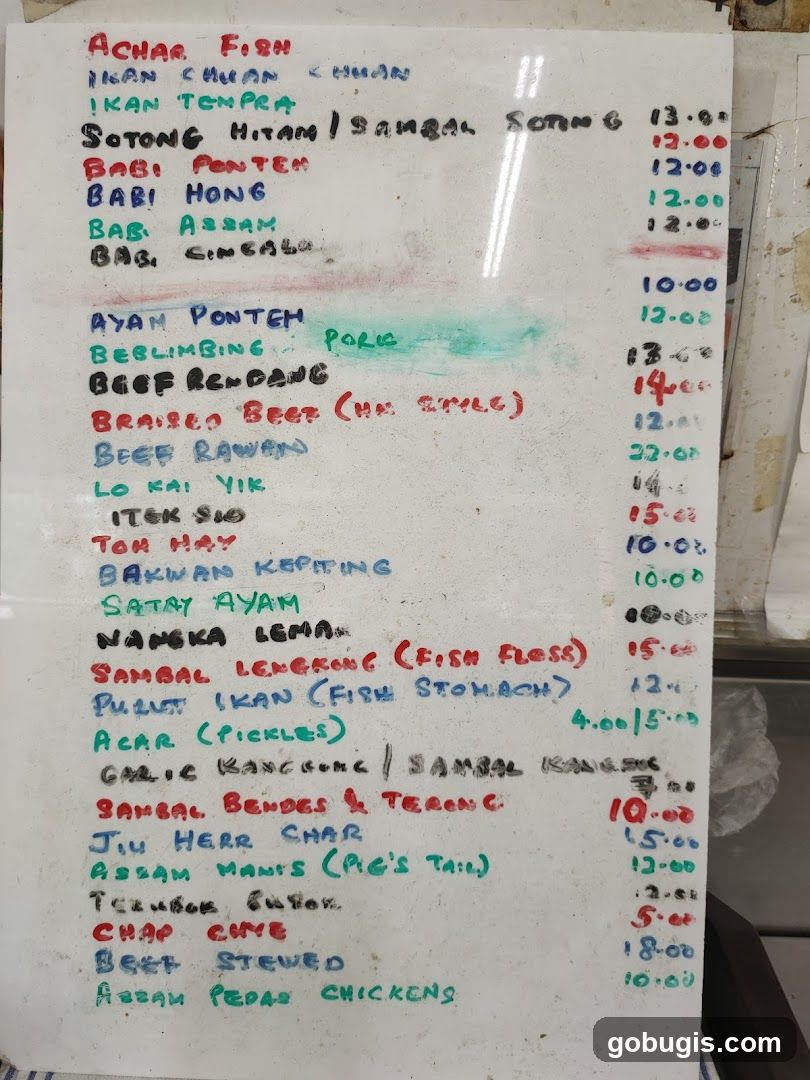 ACHAR FISH
IKAN CHUAN CHUAN
IKAN TEMPRA
SOTONG HITAM / SAMBAL SOTONG 13.00
BABI PONTEH 12.00
BABI HONG 12.00
BABi ASSAM 12.00
BABi CINCALU 12.00
AYAM PONTEH 10.00
BEBLIMBING PORK 12.00
BEEF RENDANG 13.00
BRAISED BEEF (HK STYLE) 14.00
BEEF RAWAN 12.00
LO KAI YIK 22.00
ITEK SIO 14.
TOH HAY 15.00
BAKWAN KEPITING 10.00
SATAY AYAM 10.00
NANGKA LEMAK 10.00
SAMBAL LENGKONG (FISH FLOSS) 15.00
PURUT IKAN (FISH STOMACH) 12.
ACAR (PICKLES) 4.00/5.00
GARLIC KANGKONG / SAMBAL KANGKONG
SAMBAL BENDES & TERONG 10.00
JIU HERR CHAR 15.00
ASSAM MANIS (PIG'S TAIL) 12.00
TERUBOK 12.00
CHAP CHYE 5.00
BEEF STEWED 18.00
ASSAM PEDAS CHICKENS 10.00
gobugis.com